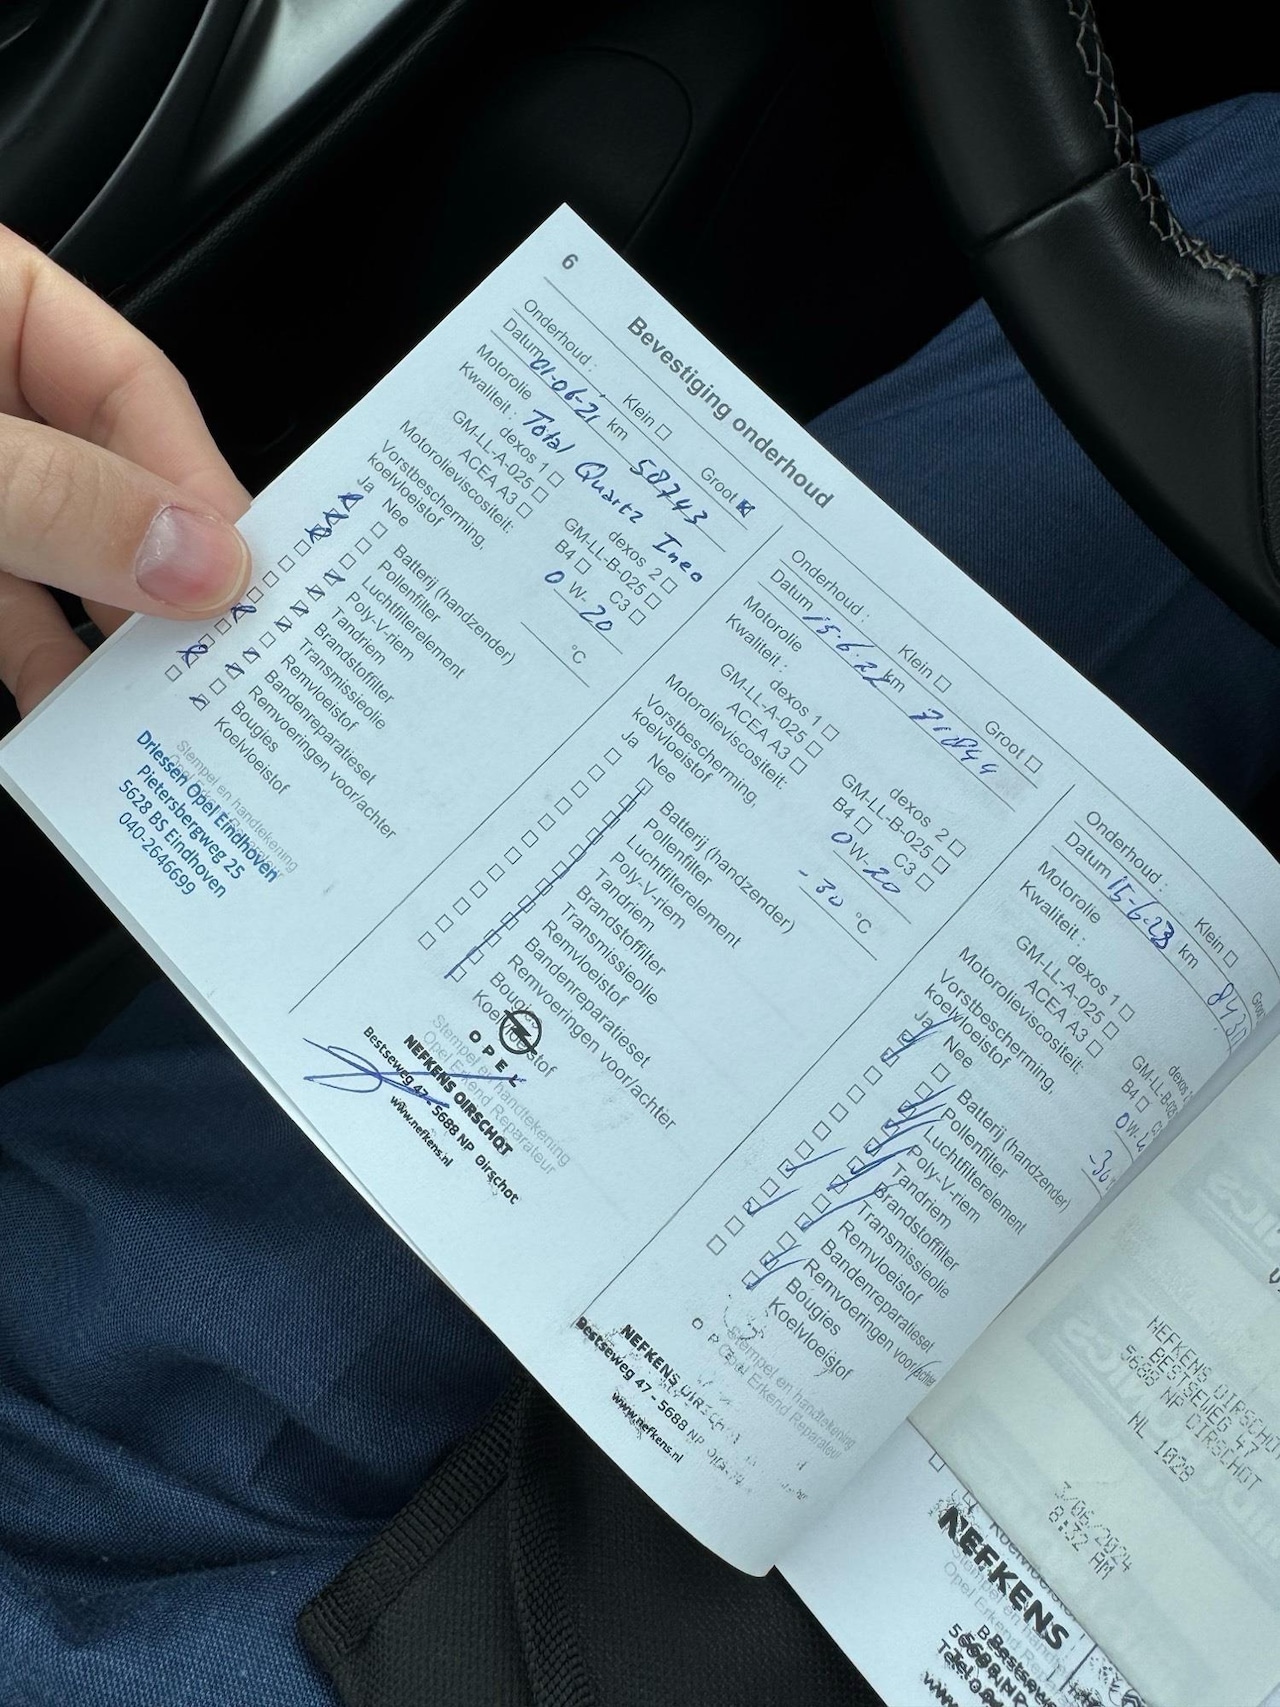 6
Bevestiging onderhoud
Onderhoud : Klein Groot
Datum 01-06-21 km 58743
Motorolie Total Quartz Ineo
Kwaliteit : dexos 1 dexos 2
GM-LL-A-025 GM-LL-B-025
ACEA A3 B4 C3
Motorolieviscositeit: 0 W- 20
Vorstbescherming,
koelvloeistof °C
Ja Nee
Batterij (handzender)
Pollenfilter
Luchtfilterelement
Poly-V-riem
Tandriem
Brandstoffilter
Transmissieolie
Remvloeistof
Bandenreparatieset
Remvoeringen voor/achter
Bougies
Koelvloeistof
Stempel en handtekening
Opel Erkend Reparateur
Driessen Opel Eindhoven
Pietersbergweg 25
5628 BS Eindhoven
040-2646699
Onderhoud : Klein Groot
Datum 15-6-22 km 71844
Motorolie
Kwaliteit : dexos 1 dexos 2
GM-LL-A-025 GM-LL-B-025
ACEA A3 B4 C3
Motorolieviscositeit: 0 W- 20
Vorstbescherming,
koelvloeistof -30 °C
Ja Nee
Batterij (handzender)
Pollenfilter
Luchtfilterelement
Poly-V-riem
Tandriem
Brandstoffilter
Transmissieolie
Remvloeistof
Bandenreparatieset
Remvoeringen voor/achter
Bougies
Koelvloeistof
Stempel en handtekening
Opel Erkend Reparateur
OPEL
NEFKENS OIRSCHOT
Bestseweg 47 - 5688 NP Oirschot
www.nefkens.nl
Onderhoud : Klein Groot
Datum 15-6-23 km
Motorolie
Kwaliteit : dexos 1 dexos 2
GM-LL-A-025 GM-LL-B-025
ACEA A3 B4
Motorolieviscositeit: 0 W-
Vorstbescherming,
koelvloeistof -30
Ja Nee
Batterij (handzender)
Pollenfilter
Luchtfilterelement
Poly-V-riem
Tandriem
Brandstoffilter
Transmissieolie
Remvloeistof
Bandenreparatieset
Remvoeringen voor/achter
Bougies
Koelvloeistof
Stempel en handtekening
Opel Erkend Reparateur
OPEL
NEFKENS OIRSCHOT
Bestseweg 47 - 5688 NP
www.nefkens.nl
NEFKENS OIRSCHOT
BESTSEWEG 47
5688 NP OIRSCHOT
NL 1028
3/06/2024
8:32 AM
Koelvloeistof
Stempel en
Opel Erkend
NEFKENS